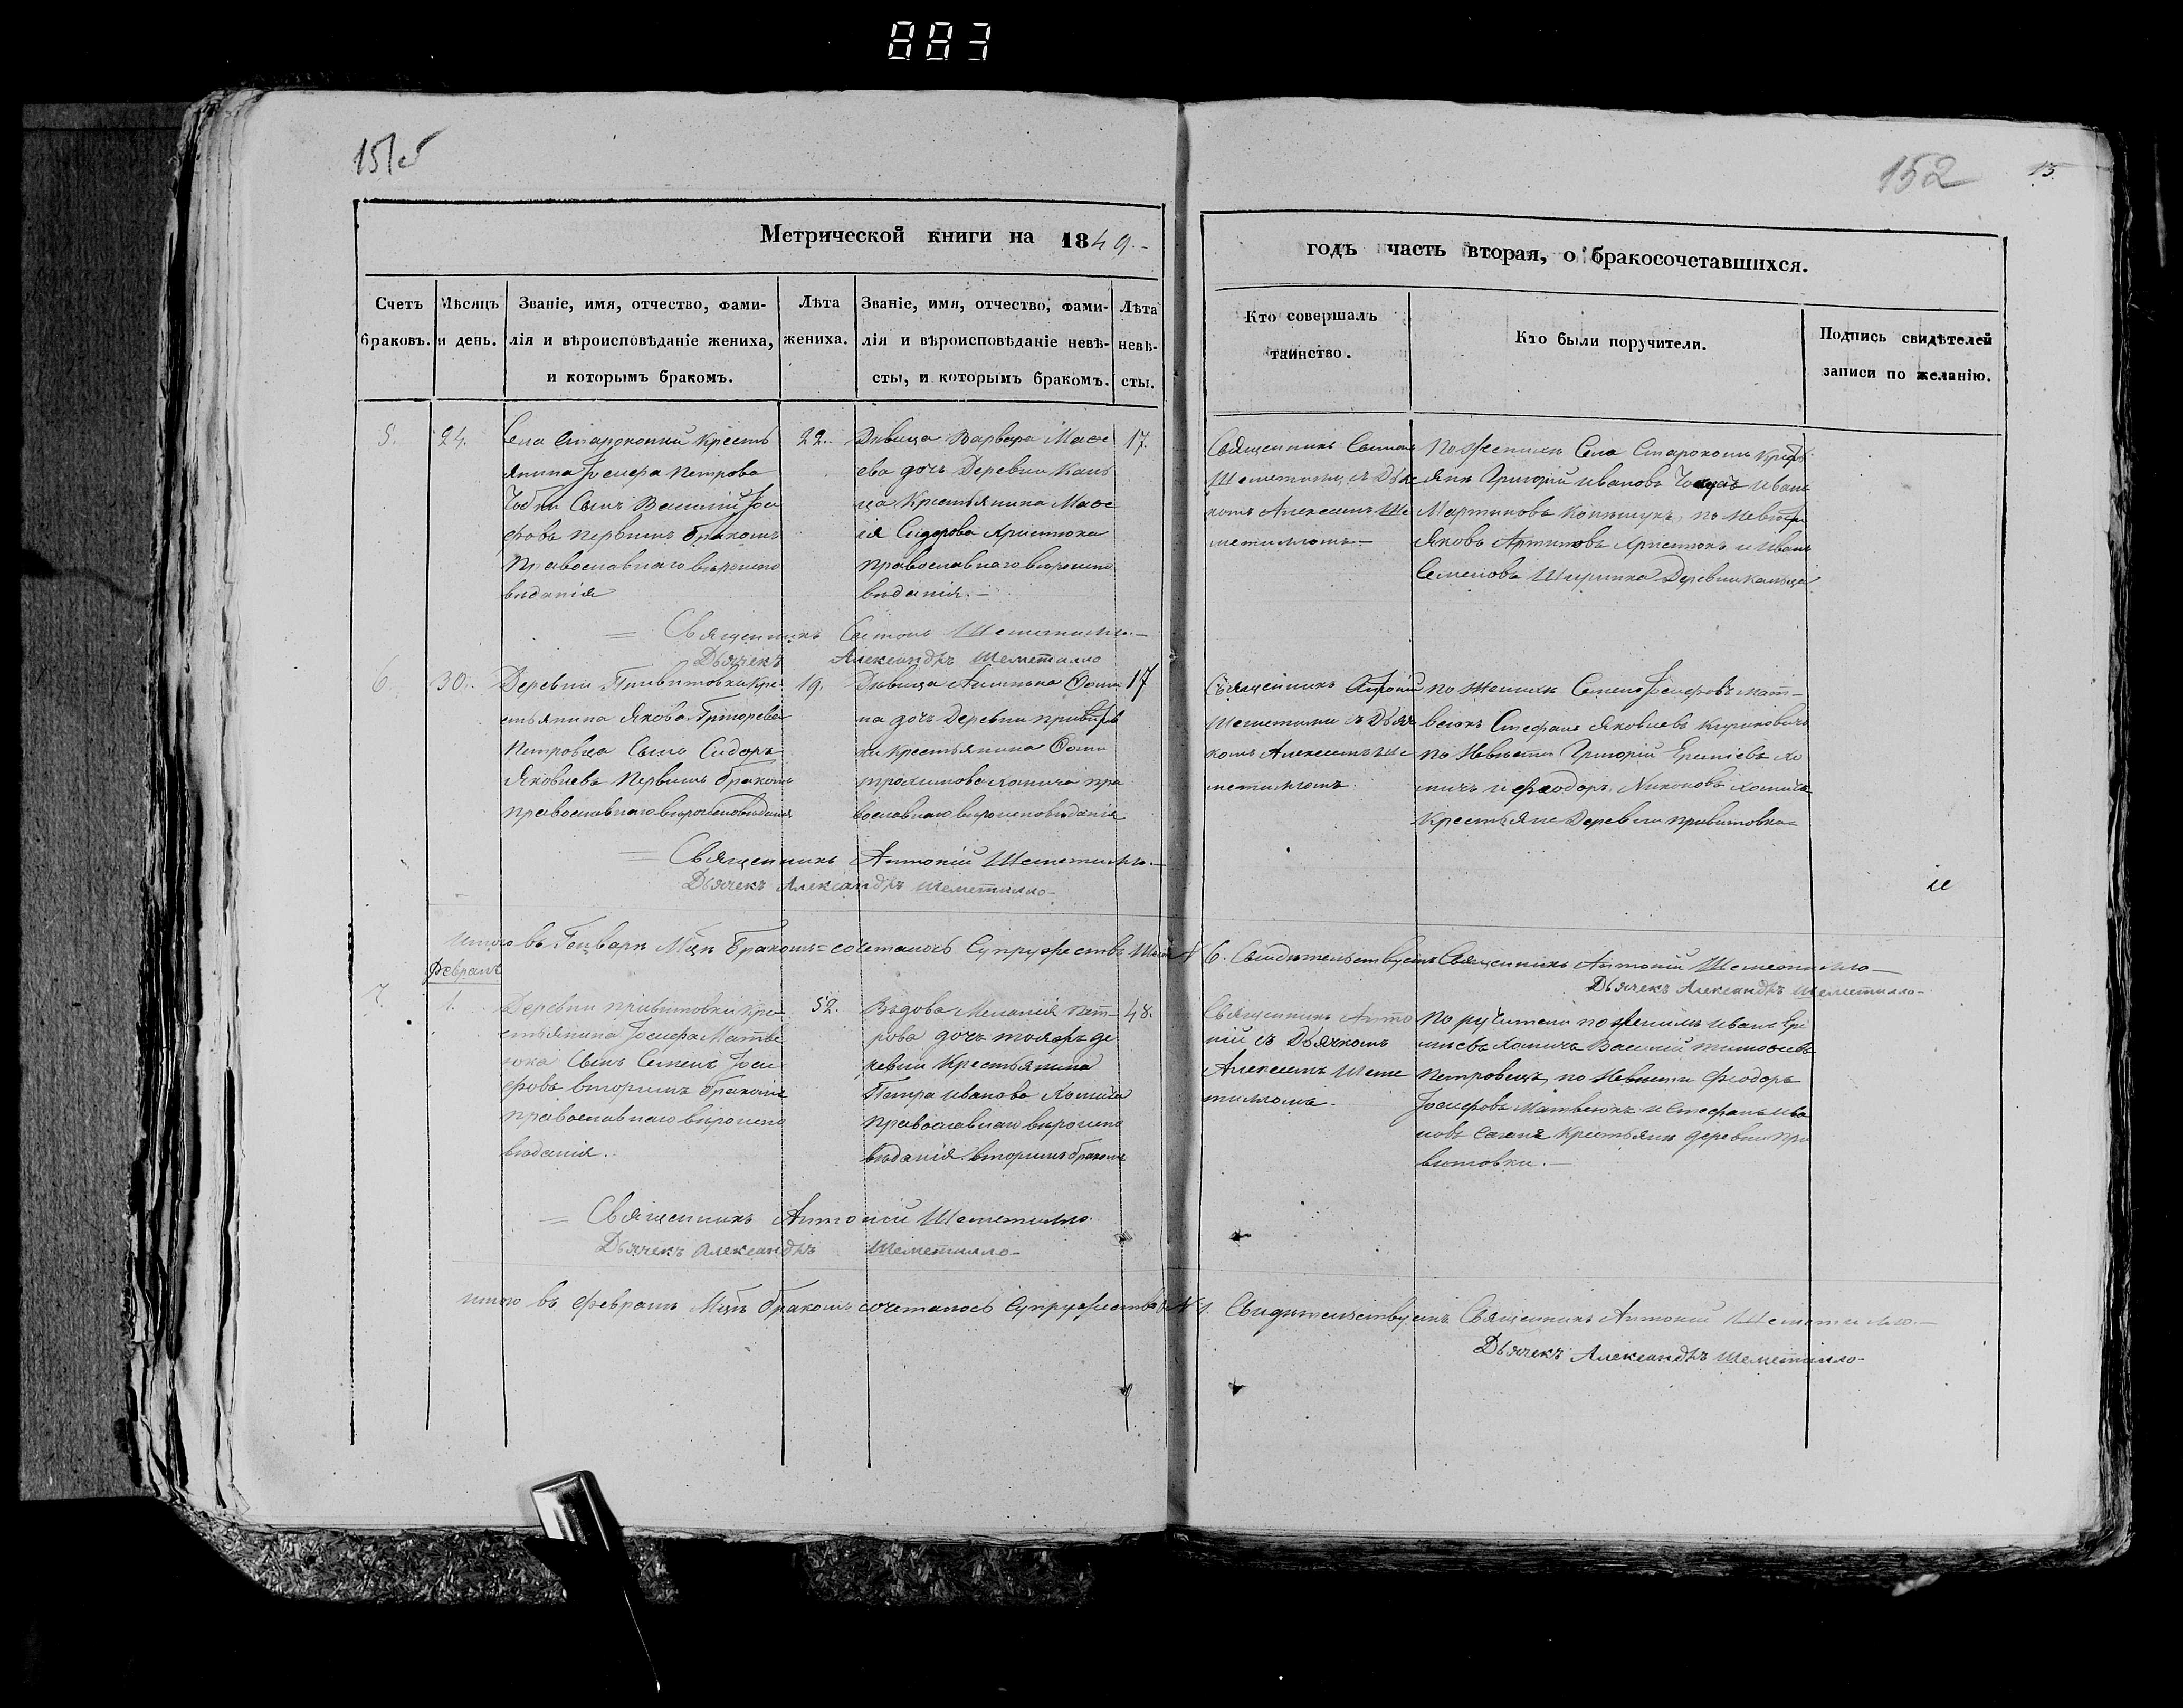 883
151об
152
15
Метрической книги на 1849.-
годъ часть вторая, о бракосочетавшихся.
Счетъ браковъ.
Мѣсяцъ и день.
Званіе, имя, отчество, фами-
лія и вѣроисповѣданіе жениха,
и которымъ бракомъ.
Лѣта
жениха.
Званіе, имя, отчество, фами-
лія и вѣроисповѣданіе невѣ-
сты, и которымъ бракомъ.
Лѣта
невѣ-
сты.
Кто совершалъ
таинство.
Кто были поручители.
Подпись свидѣтелей
записи по желанію.
5.
24.
Села Староконки кресть
янина Іосифа Петрова
сынъ Василій Іоси
фовъ первымъ бракомъ
Православнаго вѣроиспо
вѣданія
22.
Дѣвица Варвара Маѳе
ева дочь Деревни
ца Крестьянина Маѳе
ія Сидорова Христюка
православнаго вѣроиспо
вѣданія.-
17.
Священникъ Симонъ
Шеметилло съ Дья
комъ Алексемъ Ше
метилломъ.-
По женихѣ Села
яне Григорій Ивановъ Иванъ
Мартиновъ по невѣстѣ
Яковъ Артимовъ Христюкъ и Иванъ
Семеновъ Деревни
= Священникъ Симонъ Шеметилло.-
Дьячекъ Александръ Шеметилло
6
30.
Деревни Привитовки кре-
стьянина Якова Григорева
Петровца Сынъ Сидоръ
Яковлевъ Первымъ бракомъ
православнаго вѣроисповѣданія
19.
Дѣвица Ѳоми
на дочь Деревни привитов
ки крестьянина Ѳоми
Хомича пра
вославнаго вѣроисповѣданія
17
Священникъ Антоній
Шеметилло съ Дьяч
комъ Алексемъ Ше
метиломъ.
по женихѣ Семенъ Іосифовъ мат-
веюкъ Стефанъ Яковлевъ
по Невѣсти Григорій Хо
мичъ и Феодоръ Никоновъ Хомича
Крестьяне Деревни привитовка=
= Священникъ Антоній Шеметилло.-
Дьячекъ Александръ Шеметилло-
Итого въ Генварѣ М-цѣ бракомъ=сочеталось Супружествъ № 6. Свидѣтельствуемъ Священникъ Антоній Шеметилло-
Дьячекъ Александръ Шеметилло-
Февраль
7.
1.
Деревни привитовки кре-
стьянина Іосифа Матве
юка Сынъ Семенъ Іоси
фовъ вторимъ бракомъ
православнаго вѣроиспо
вѣданія.-
52.
Вдова Меланія пет-
рова дочь тояжъ де
ревни Крестьянина
Петра Иванова Хомича
православнаго вѣроиспо
вѣданія вторимъ бракомъ
48.
Священникъ Анто
ній съ Дьячкомъ
Алексемъ Шеме
тилломъ.-
Поручители по женихѣ Иванъ Ере
міевъ Хомичъ Василій Тимоѳеевъ
Петровецъ, по Невѣсти Феодоръ
Іосифовъ Матвеюкъ и Стефанъ Ива
новъ Крестьяне деревни при
витовки.-
= Священникъ Антоній Шеметилло.
Дьячекъ Александръ Шеметилло-
итого въ Февралѣ М-цѣ бракомъ сочеталось Супружество № 1. Свидительствуемъ Священникъ Антоній Шеметилло.-
Дьячекъ Александръ Шеметилло-